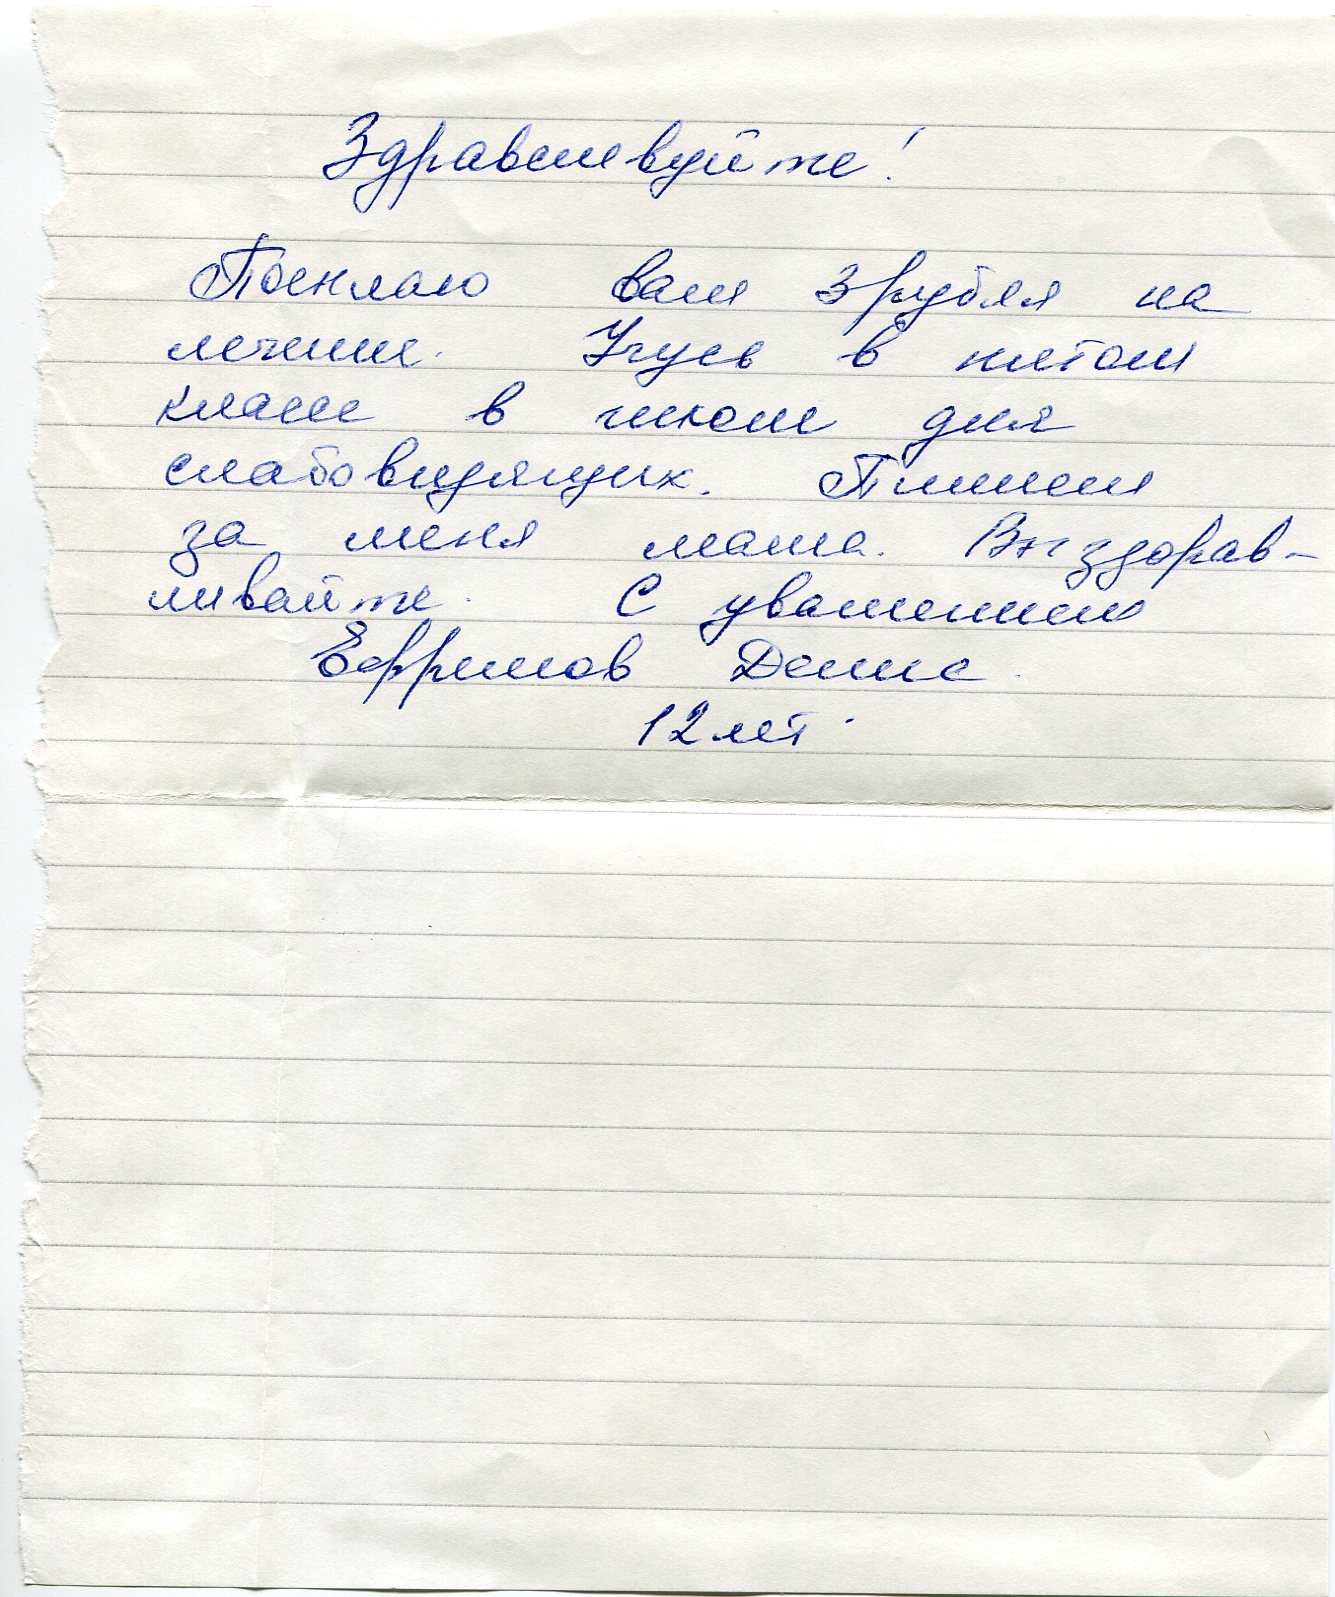 Здравствуйте!
Посылаю вам 3 рубля на
лечение. Учусь в пятом
классе в школе для
слабовидящих. Пишет
за меня мама. Выздорав-
ливайте. С уважением
Ефримов Денис.
12 лет.